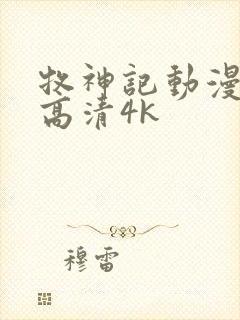 牧神記動漫
高清4K
穆雷